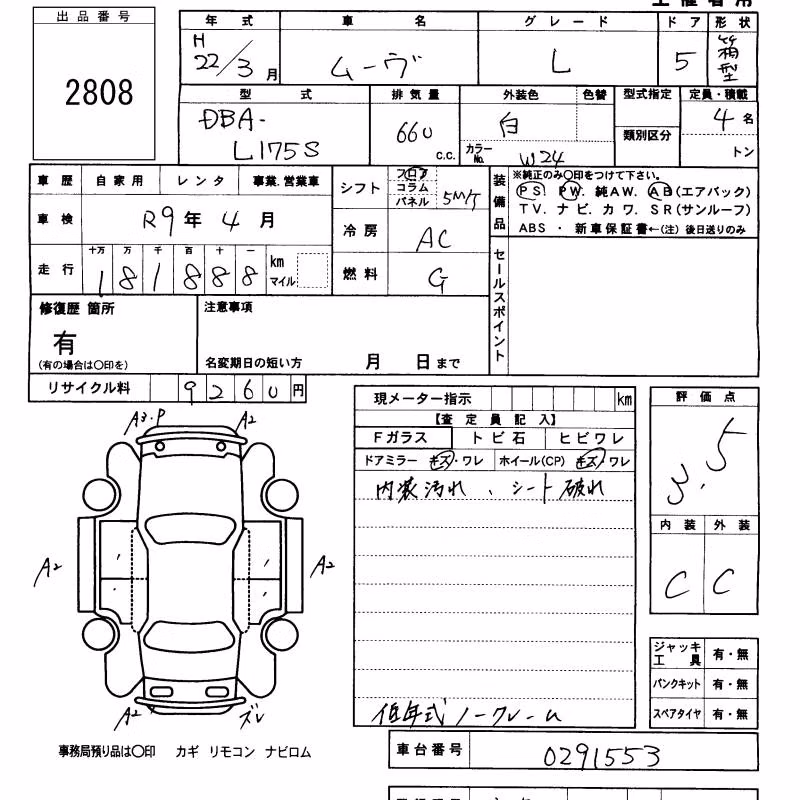 出品番号
2808
年式 車名 グレード ドア 形状
H 22/3月 ムーヴ L 5 箱型
型式 排気量 外装色 色替 型式指定 定員・積載
DBA-L175S 660 c.c. 白 カラーNo. W24 類別区分 4名 トン
車歴 自家用 レンタ 事業.営業車
車検 R9年4月
走行 十万 万 千 百 十 一 km マイル
181888
シフト フロア コラム パネル 5M/T
冷房 AC
燃料 G
装備品 ※純正のみ〇印をつけて下さい。
PS PW. 純AW. AB(エアバック)
TV. ナビ. カワ. SR(サンルーフ)
ABS ・ 新車保証書←(注) 後日送りのみ
セールスポイント
修復歴 箇所
有
(有の場合は〇印を)
注意事項
名変期日の短い方 月 日まで
リサイクル料 9260円
現メーター指示 km
【査定員記入】
Fガラス トビ石 ヒビワレ
ドアミラー キズ・ワレ ホイール(CP) キズ・ワレ
内装汚れ、シート破れ
低年式ノークレーム
評価点
3.5
内装 外装
C C
A3.P A2
A2 A2
A2 ズレ
ジャッキ工具 有・無
パンクキット 有・無
スペアタイヤ 有・無
事務局預り品は〇印 カギ リモコン ナビロム
車台番号 0291553